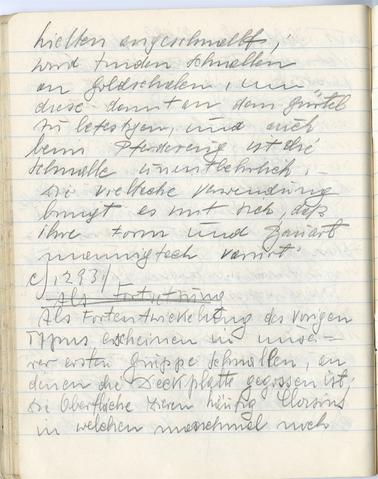 hielten angeschnallt,
wird finden Schnallen
an Goldschalen, um
diese damit an dem Gürtel
zu befestigen, und auch
beim Pferdezeug ist die
Schnalle unentbehrlich.
Die vielfache Verwendung
bringt es mit sich, daß
ihre Form und Bauart
mannigfach variirt
c) 1293/
Als Fortsetzung
Als Fortentwickelung des vorigen
Typus erscheinen in unse-
rer ersten Gruppe Schnallen, an
denen die Deckplatte gegossen ist,
die Oberfläche zieren häufig
in welchen manchmal noch